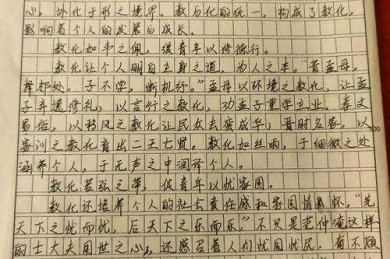 心，外化于形之境界。教与化的统一，构成了教化，
影响着个人的发展与成长。
教化如手之佩，缓青年以修德行。
教化让个人明自立身之道，为人之本。"昔孟母，
择邻处。子不学，断机杼。"孟母以环境之教化，让孟
子弃退修礼，以言行之教化，劝孟子重学立业。春文
易俗，以移风之教化让民众去蛮成华，晋时名家，以
家训之教化育出二王七贤。教化如丝响，于细微之处
涵养个人，于无声之中润泽个人。
教化若弦之弹，促青年以忧家国。
教化还培养个人的社会责任感和家国情怀，"先
天下之忧而忧，后天下之乐而乐"，不只是范仲淹这样
的士大夫用世之心，还感召着人们忧国忧民，有不顾